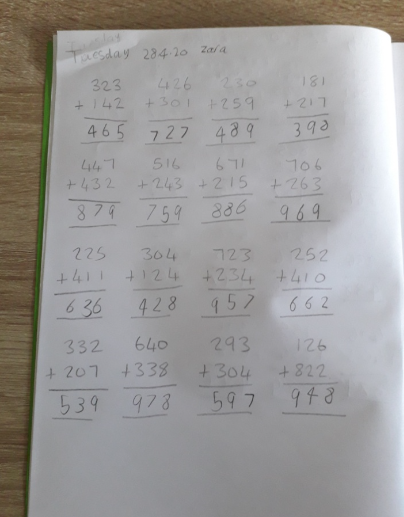 Tuesday 28.4.20 Zara
323 426 230 181
+142 +301 +259 +217
465 727 489 398
447 516 671 706
+432 +243 +215 +263
879 759 886 969
225 304 723 252
+411 +124 +234 +410
636 428 957 662
332 640 293 126
+207 +338 +304 +822
539 978 597 948